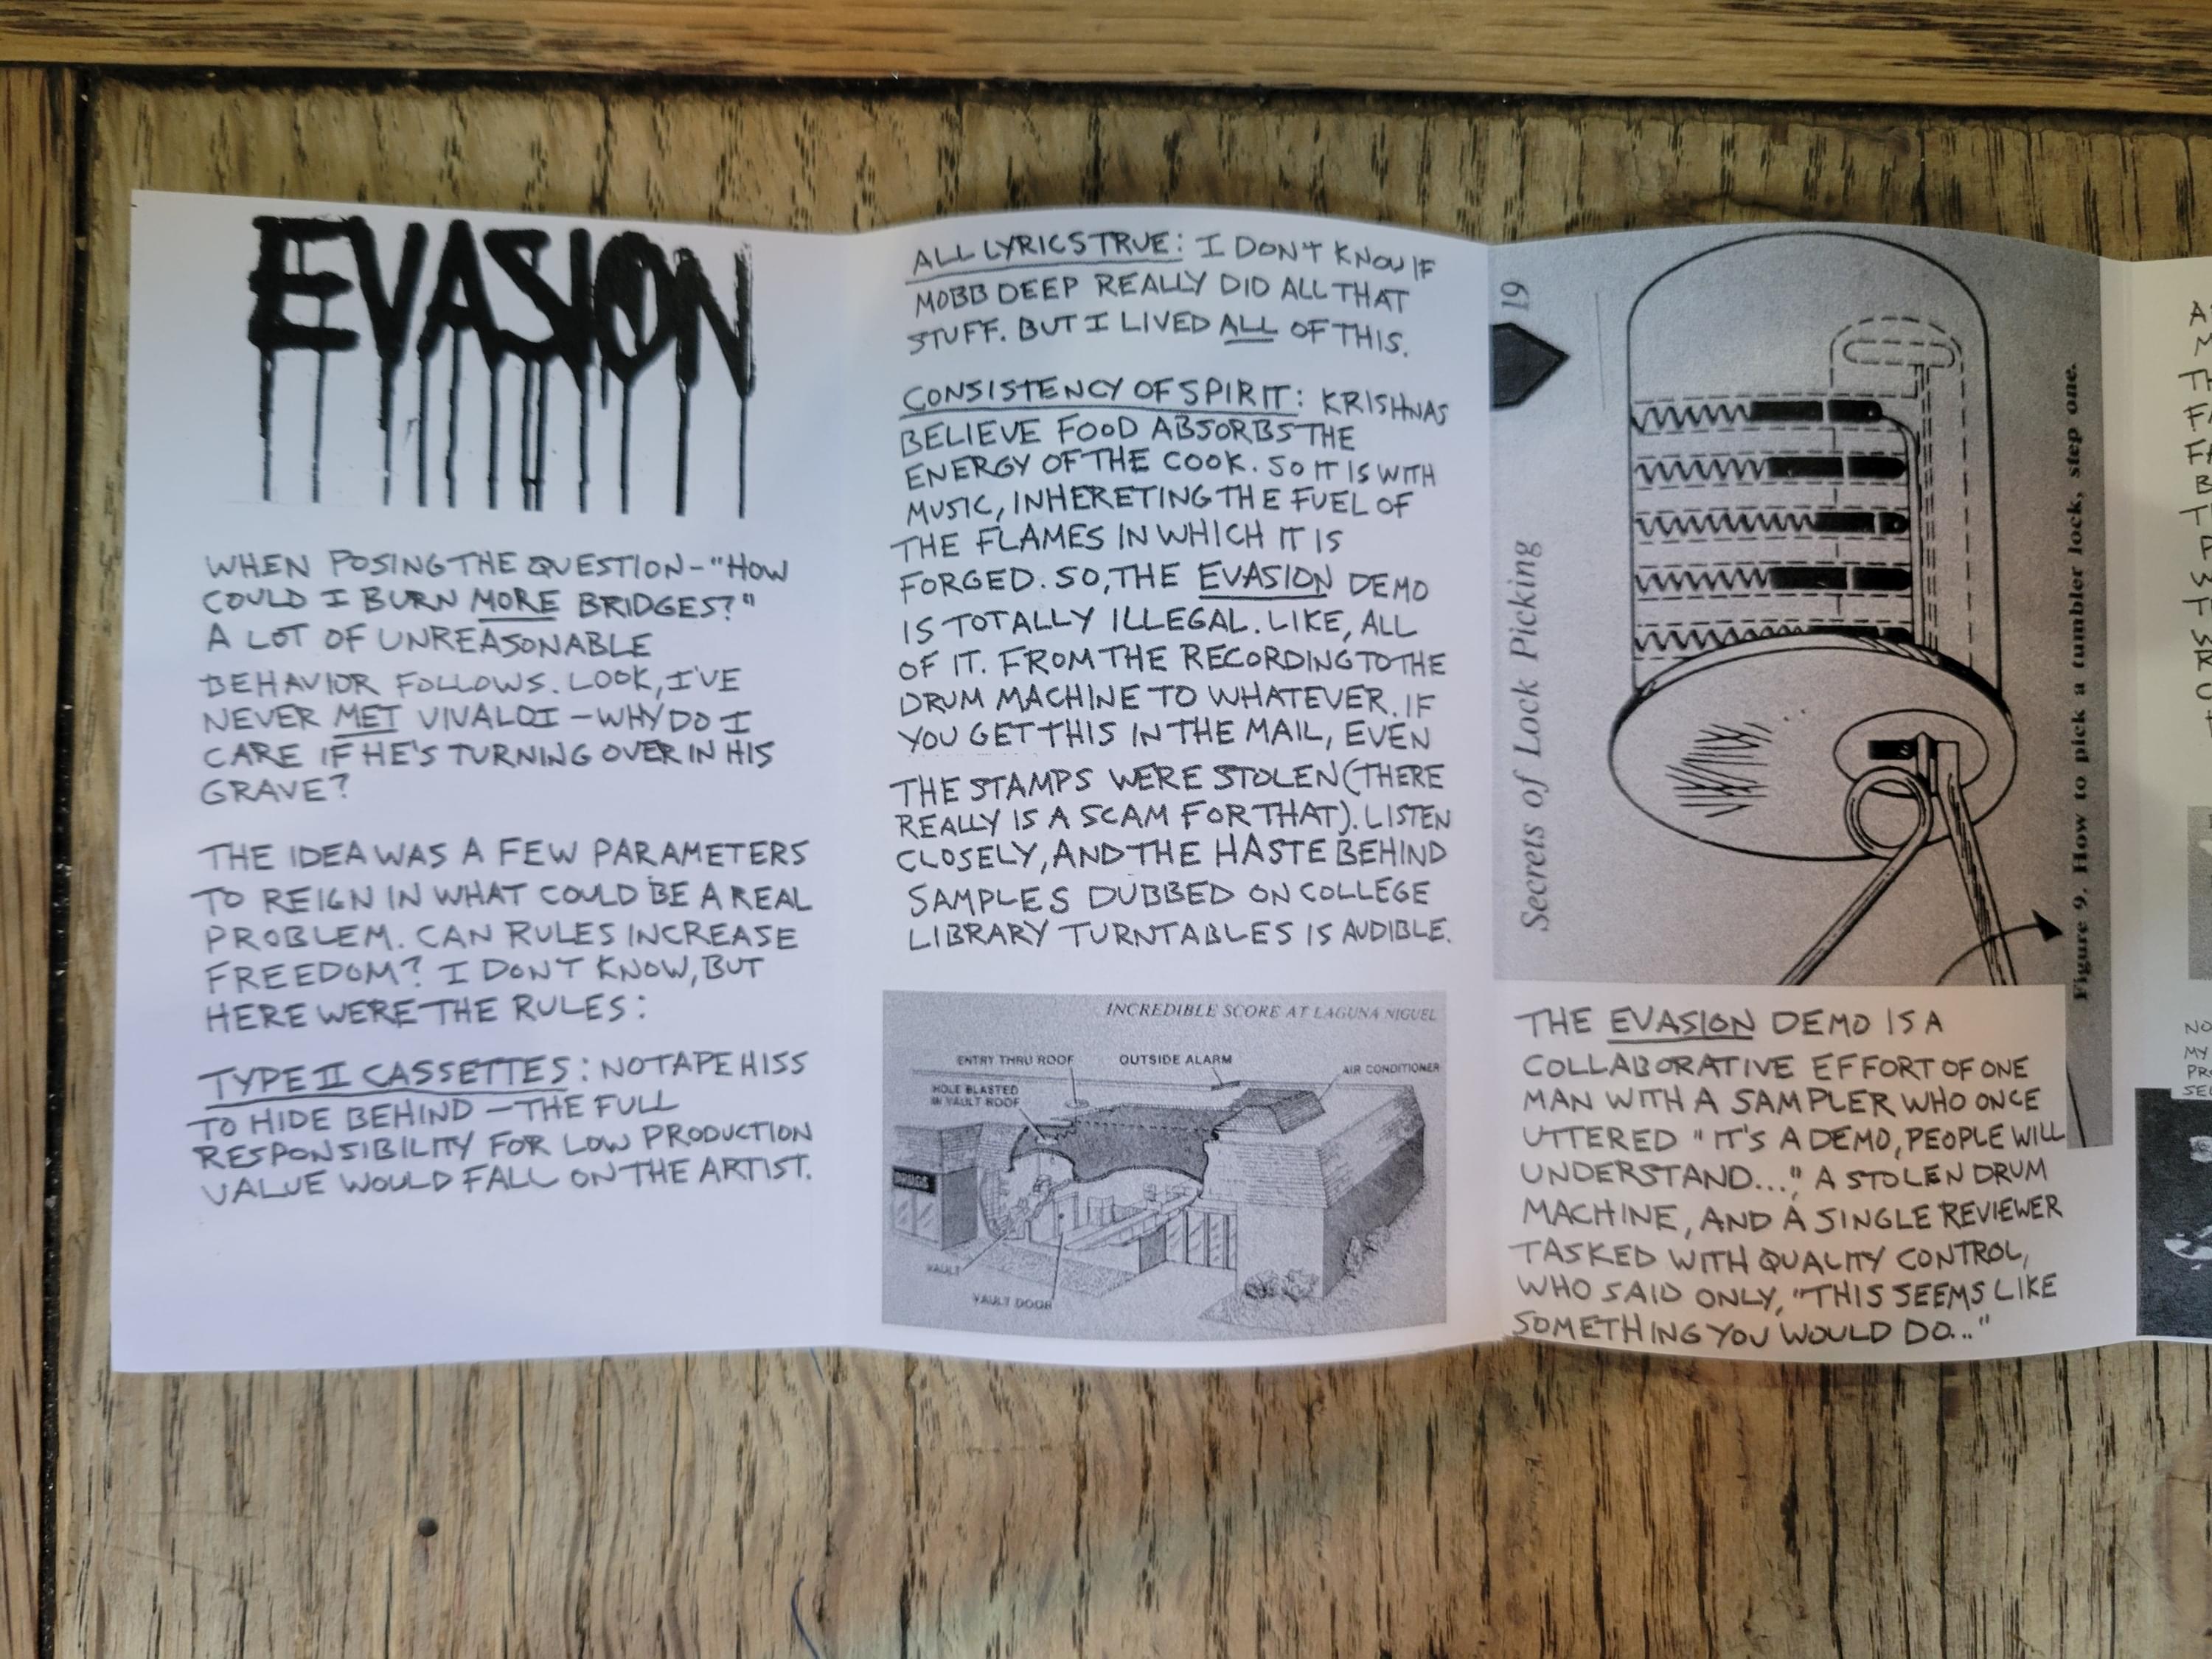 EVASION
WHEN POSING THE QUESTION-"HOW
COULD I BURN MORE BRIDGES?"
A LOT OF UNREASONABLE
BEHAVIOR FOLLOWS. LOOK, I'VE
NEVER MET VIVALDI - WHY DO I
CARE IF HE'S TURNING OVER IN HIS
GRAVE?
THE IDEA WAS A FEW PARAMETERS
TO REIGN IN WHAT COULD BE A REAL
PROBLEM. CAN RULES INCREASE
FREEDOM? I DON'T KNOW, BUT
HERE WERE THE RULES:
TYPE II CASSETTES: NO TAPE HISS
TO HIDE BEHIND - THE FULL
RESPONSIBILITY FOR LOW PRODUCTION
VALUE WOULD FALL ON THE ARTIST.
ALL LYRICS TRUE: I DON'T KNOW IF
MOBB DEEP REALLY DID ALL THAT
STUFF. BUT I LIVED ALL OF THIS.
CONSISTENCY OF SPIRIT: KRISHNAS
BELIEVE FOOD ABSORBS THE
ENERGY OF THE COOK. SO IT IS WITH
MUSIC, INHERETING THE FUEL OF
THE FLAMES IN WHICH IT IS
FORGED. SO, THE EVASION DEMO
IS TOTALLY ILLEGAL. LIKE, ALL
OF IT. FROM THE RECORDING TO THE
DRUM MACHINE TO WHATEVER. IF
YOU GET THIS IN THE MAIL, EVEN
THE STAMPS WERE STOLEN (THERE
REALLY IS A SCAM FOR THAT). LISTEN
CLOSELY, AND THE HASTE BEHIND
SAMPLES DUBBED ON COLLEGE
LIBRARY TURNTABLES IS AUDIBLE.
INCREDIBLE SCORE AT LAGUNA NIGUEL
ENTRY THRU ROOF
OUTSIDE ALARM
AIR CONDITIONER
HOLE BLASTED
IN VAULT ROOF
DRUGS
VAULT
VAULT DOOR
19
Secrets of Lock Picking
Figure 9. How to pick a tumbler lock, step one.
THE EVASION DEMO IS A
COLLABORATIVE EFFORT OF ONE
MAN WITH A SAMPLER WHO ONCE
UTTERED "IT'S A DEMO, PEOPLE WILL
UNDERSTAND...", A STOLEN DRUM
MACHINE, AND A SINGLE REVIEWER
TASKED WITH QUALITY CONTROL,
WHO SAID ONLY, "THIS SEEMS LIKE
SOMETHING YOU WOULD DO..."
MY